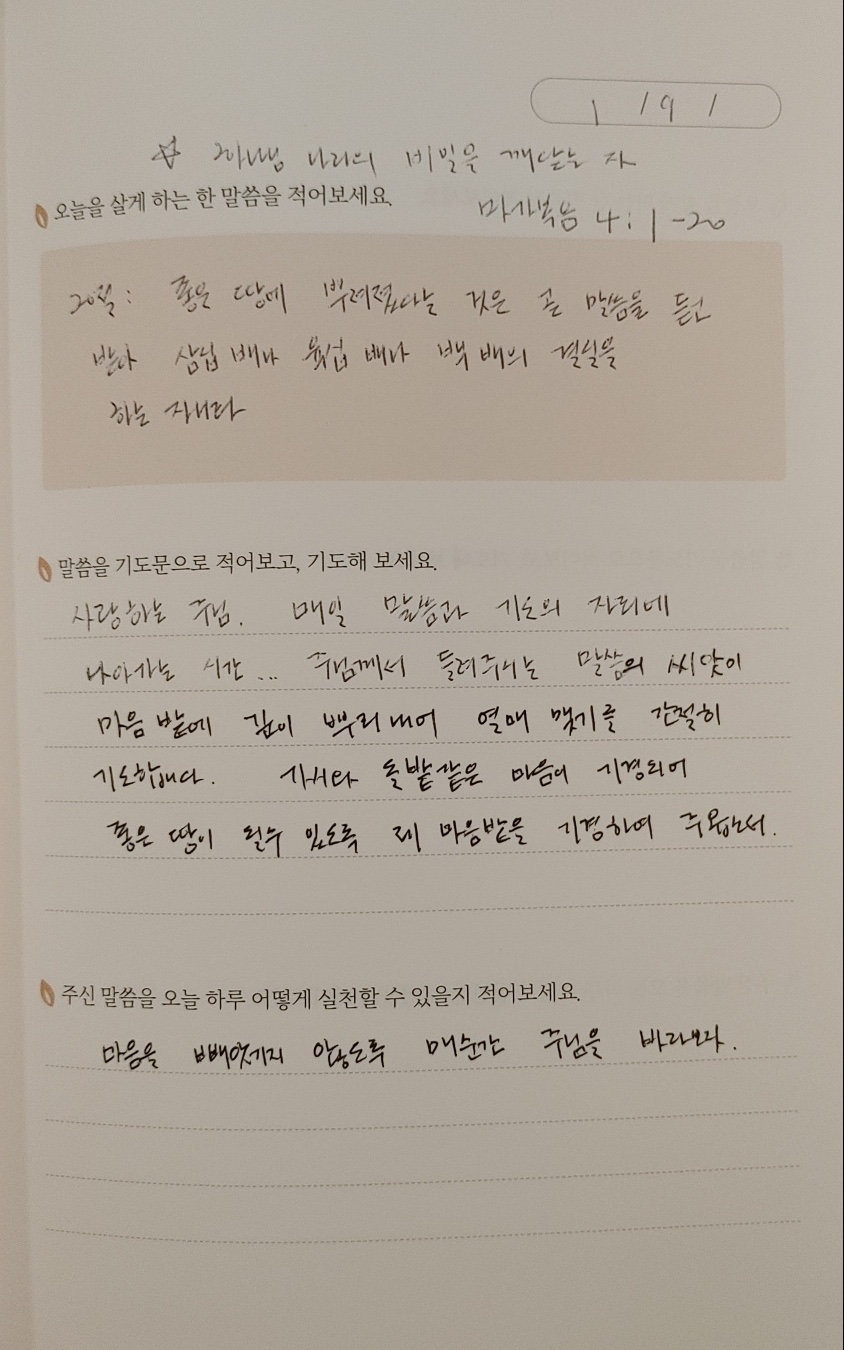 1 / 9 /
☆ 하나님 나라의 비밀을 깨닫는 자
오늘을 살게 하는 한 말씀을 적어보세요.
마가복음 4:1-20
20절: 좋은 땅에 뿌려졌다는 것은 곧 말씀을 듣고
받아 삼십 배나 육십 배나 백 배의 결실을
하는 자니라
말씀을 기도문으로 적어보고, 기도해 보세요.
사랑하는 주님. 매일 말씀과 기도의 자리에
나아가는 시간... 주님께서 들려주시는 말씀의 씨앗이
마음 밭에 깊이 뿌리 내려 열매 맺기를 간절히
기도합니다. 가시와 돌밭같은 마음이 기경되어
좋은 땅이 될수 있도록 제 마음밭을 기경하여 주옵소서.
주신 말씀을 오늘 하루 어떻게 실천할 수 있을지 적어보세요.
마음을 빼앗기지 않도록 매순간 주님을 바라보자.